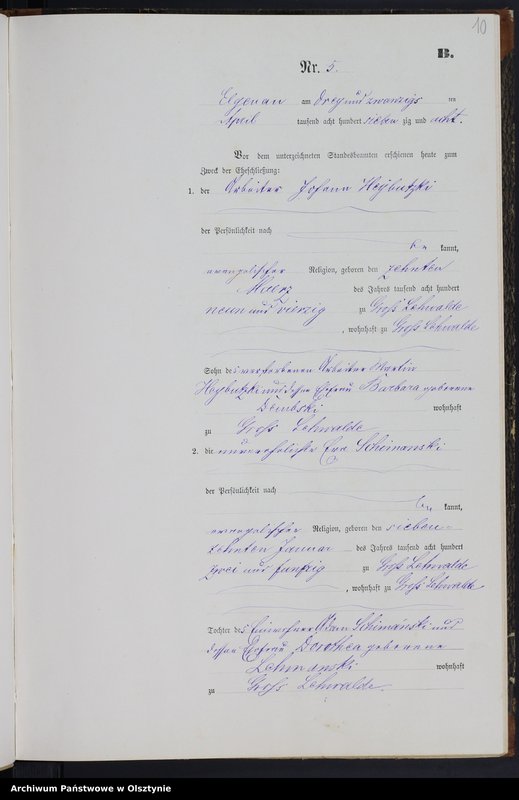 10
B.
Nr. 5.
Elgenau am dreyundzwanzigs ten
April tausend acht hundert sieben zig und acht.
Vor dem unterzeichneten Standesbeamten erschienen heute zum
Zweck der Eheschließung:
1. der Arbeiter Johann Heybutzki
der Persönlichkeit nach
be kannt,
evangelischer Religion, geboren den zehnten
Maerz des Jahres tausend acht hundert
neun und vierzig zu Groß Lehwalde
, wohnhaft zu Groß Lehwalde
Sohn des verstorbenen Arbeiter Martin
Heybutzki und dessen Ehefrau Barbara geborene
Dembski wohnhaft
zu Groß Lehwalde
2. die unverehelichte Eva Schimanski
der Persönlichkeit nach
be kannt,
evangelischer Religion, geboren den sieben-
zehnten Januar des Jahres tausend acht hundert
zwei und funfzig zu Groß Lehwalde
, wohnhaft zu Groß Lehwalde
Tochter des Einwohner Adam Schimanski und
dessen Ehefrau Dorothea geborene
Lehmanski wohnhaft
zu Groß Lehwalde.
Archiwum Państwowe w Olsztynie